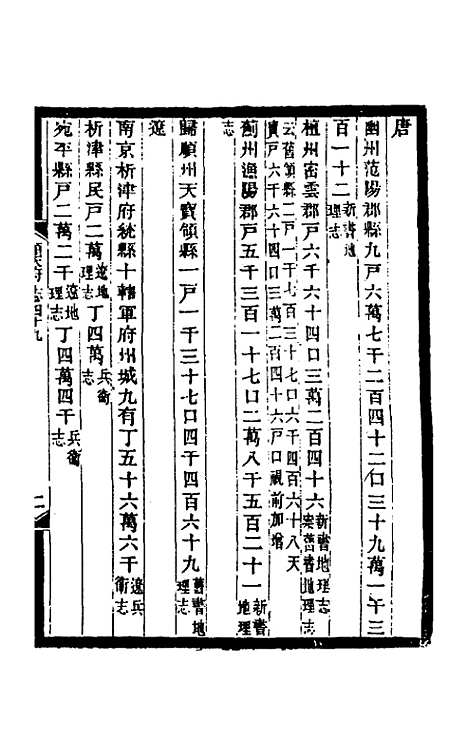 唐
幽州范陽郡縣九戸六萬七千二百四十二口三十九萬一千三
百一十二新書地理志
檀州密雲郡戸六千六十四口三萬二百四十六新書地理志案舊書地理志
云舊領縣二戸一千七百三十七口六千四百六十八天
寶戸六千六十四口三萬二百四十六戸口視前加增
薊州漁陽郡戸五千三百一十七口二萬八千五百二十一新書地理
志
歸順州天寶領縣一戸一千三十七口四千四百六十九舊書地理志
遼
南京析津府統縣十轄軍府州城九有丁五十六萬六千遼兵衛志
析津縣民戸二萬遼地理志丁四萬兵衛志
宛平縣戸二萬二千遼地理志丁四萬四千兵衛志
順天府志四十九
二